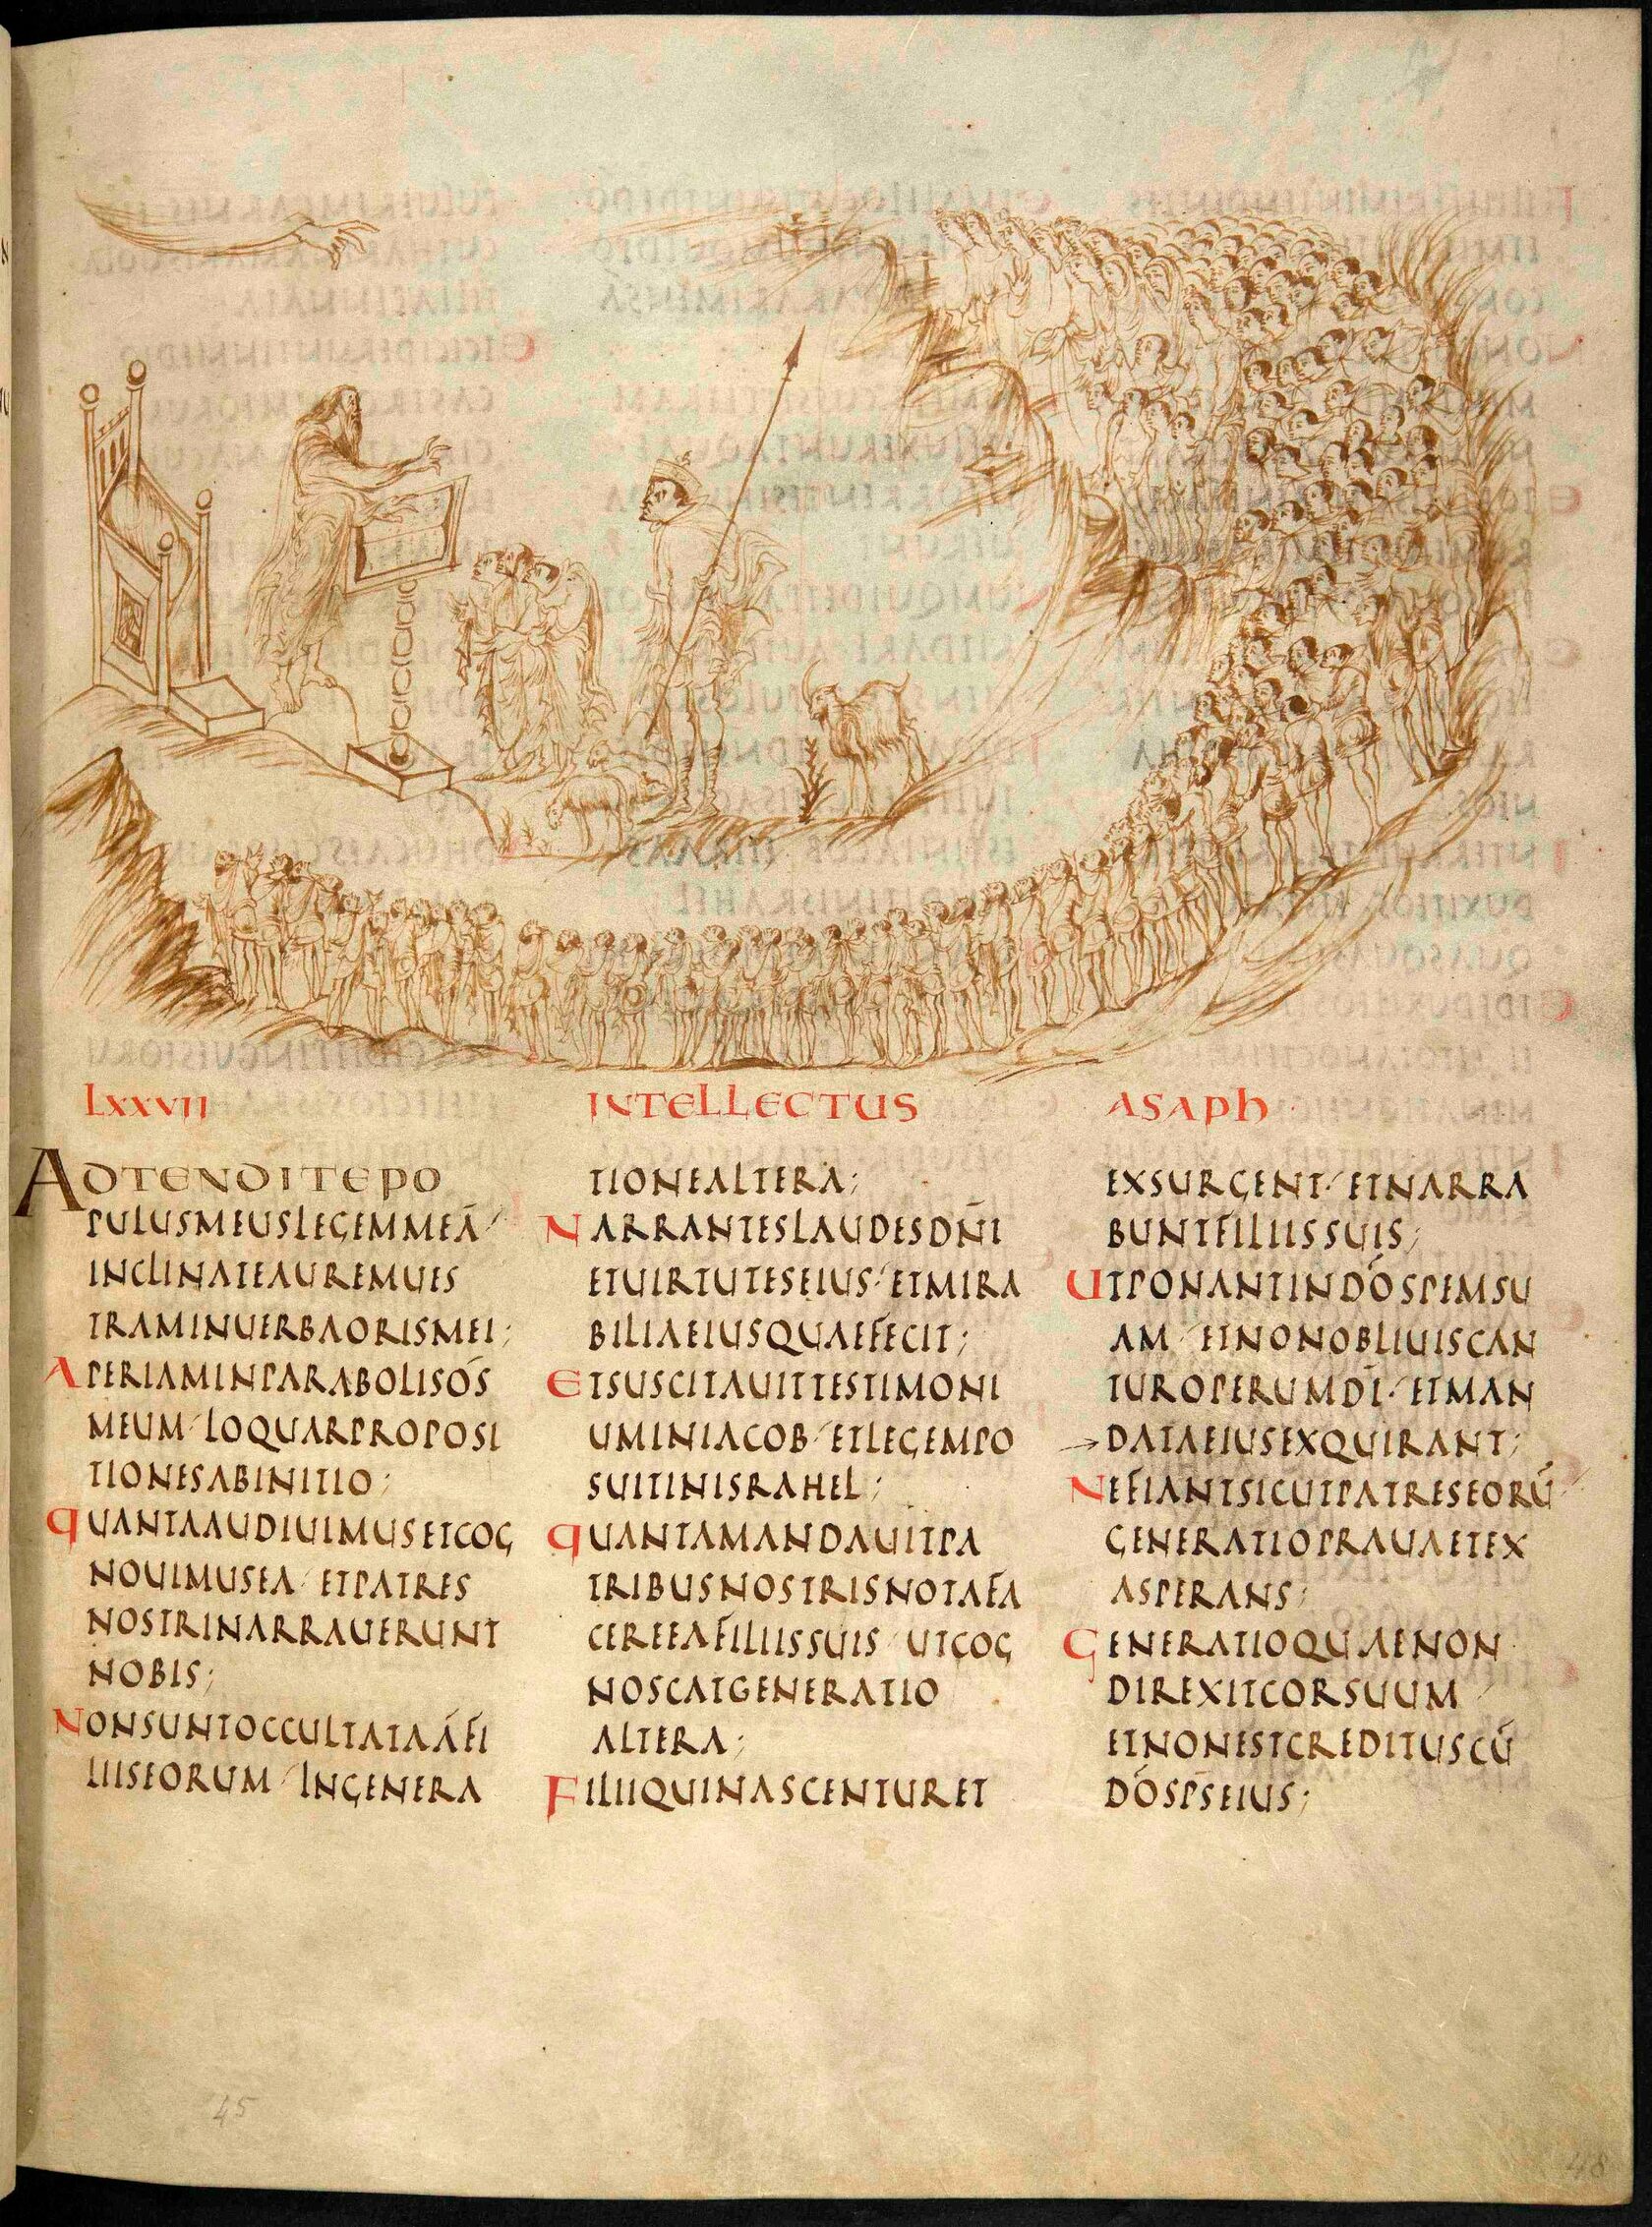 LXXVII INTELLECTUS ASAPH
ADTENDITEPO
PULUSMEUSLEGEMMEĀ
INCLINATEAUREMUES
TRAMINUERBAORISMEI;
APERIAMINPARABOLISÓS
MEUM LOQUARPROPOSI
TIONESABINITIO;
QUANTAAUDIUIMUSETCOG
NOUIMUSEA ETPATRES
NOSTRINARRAUERUNT
NOBIS;
NONSUNTOCCULTATAÁFI
LIISEORUM INGENERA
TIONEALTERA;
NARRANTESLAUDESDN̄I
ETUIRTUTESEIUS ETMIRA
BILIAEIUSQUAEFECIT;
ETSUSCITAUITTESTIMONI
UMINIACOB ETLEGEMPO
SUITINISRAHEL;
QUANTAMANDAUITPA
TRIBUSNOSTRISNOTAFA
CEREEAFILIISSUIS UTCOG
NOSCATGENERATIO
ALTERA;
FILIIQUINASCENTURET
EXSURGENT ETNARRA
BUNTFILIISSUIS;
UTPONANTINDŌSPEMSU
AM ETNONOBLIUISCAN
TUROPERUMDĪ ETMAN
DATAEIUSEXQUIRANT;
NEFIANTSICUTPATRESEORŪ
GENERATIOPRAUAETEX
ASPERANS;
GENERATIOQUAENON
DIREXITCORSUUM
ETNONESTCREDITUSCŪ
DŌSPSEIUS;
45
48